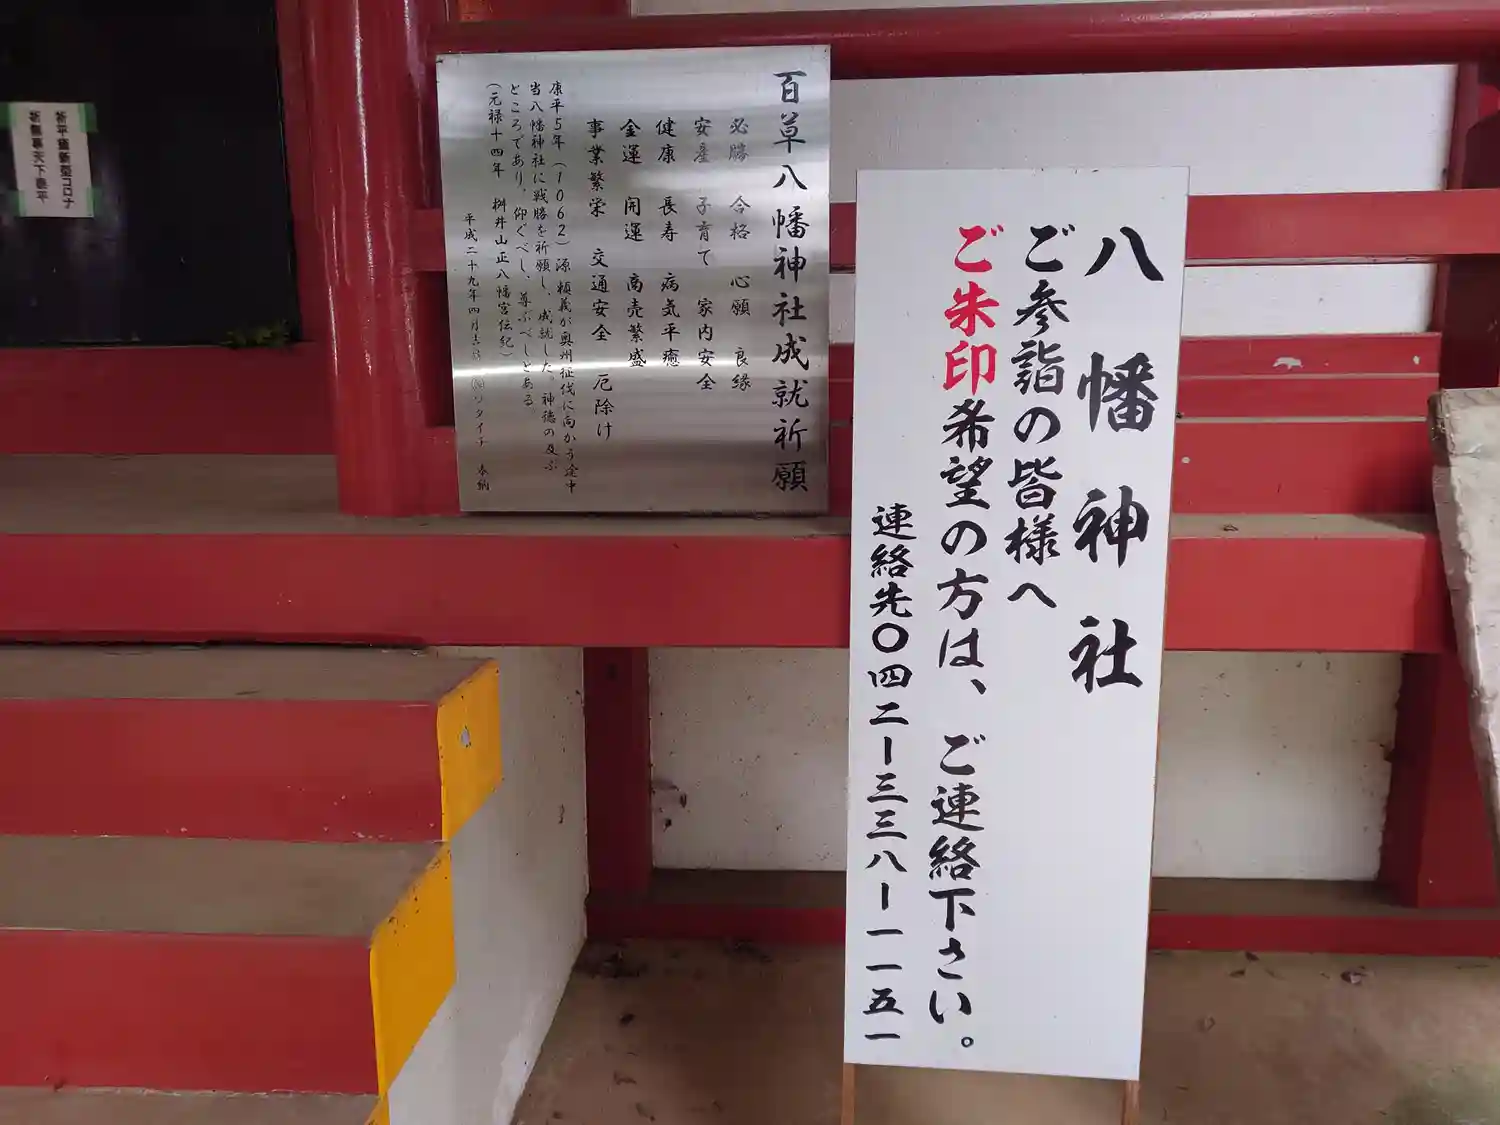 八幡神社
ご参詣の皆様へ
ご朱印希望の方は、ご連絡下さい。
連絡先〇四二ー三三八ー一一五一
百草八幡神社成就祈願
必勝 合格 心願 良縁
安産 子育て 家内安全
健康 長寿 病気平癒
金運 開運 商売繁盛
事業繁栄 交通安全 厄除け
康平5年(1062)源頼義が奥州征伐に向かう途中
当八幡神社に戦勝を祈願し、成就した。神徳の及ぶ
ところであり、仰ぐべし、尊ぶべしとある
(元禄十四年 桝井山正八幡宮伝紀)
平成二十九年四月吉日 ㈱ソタイチ 奉納
祈平癒新型コロナ
祈無事天下泰平